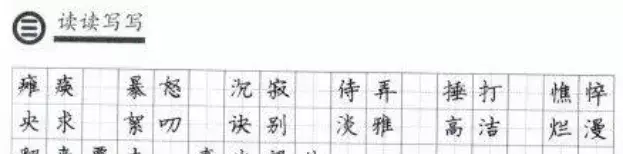 三 读读写写
瘫痪 暴怒 沉寂 侍弄 捶打 憔悴
央求 絮叨 诀别 淡雅 高洁 烂漫